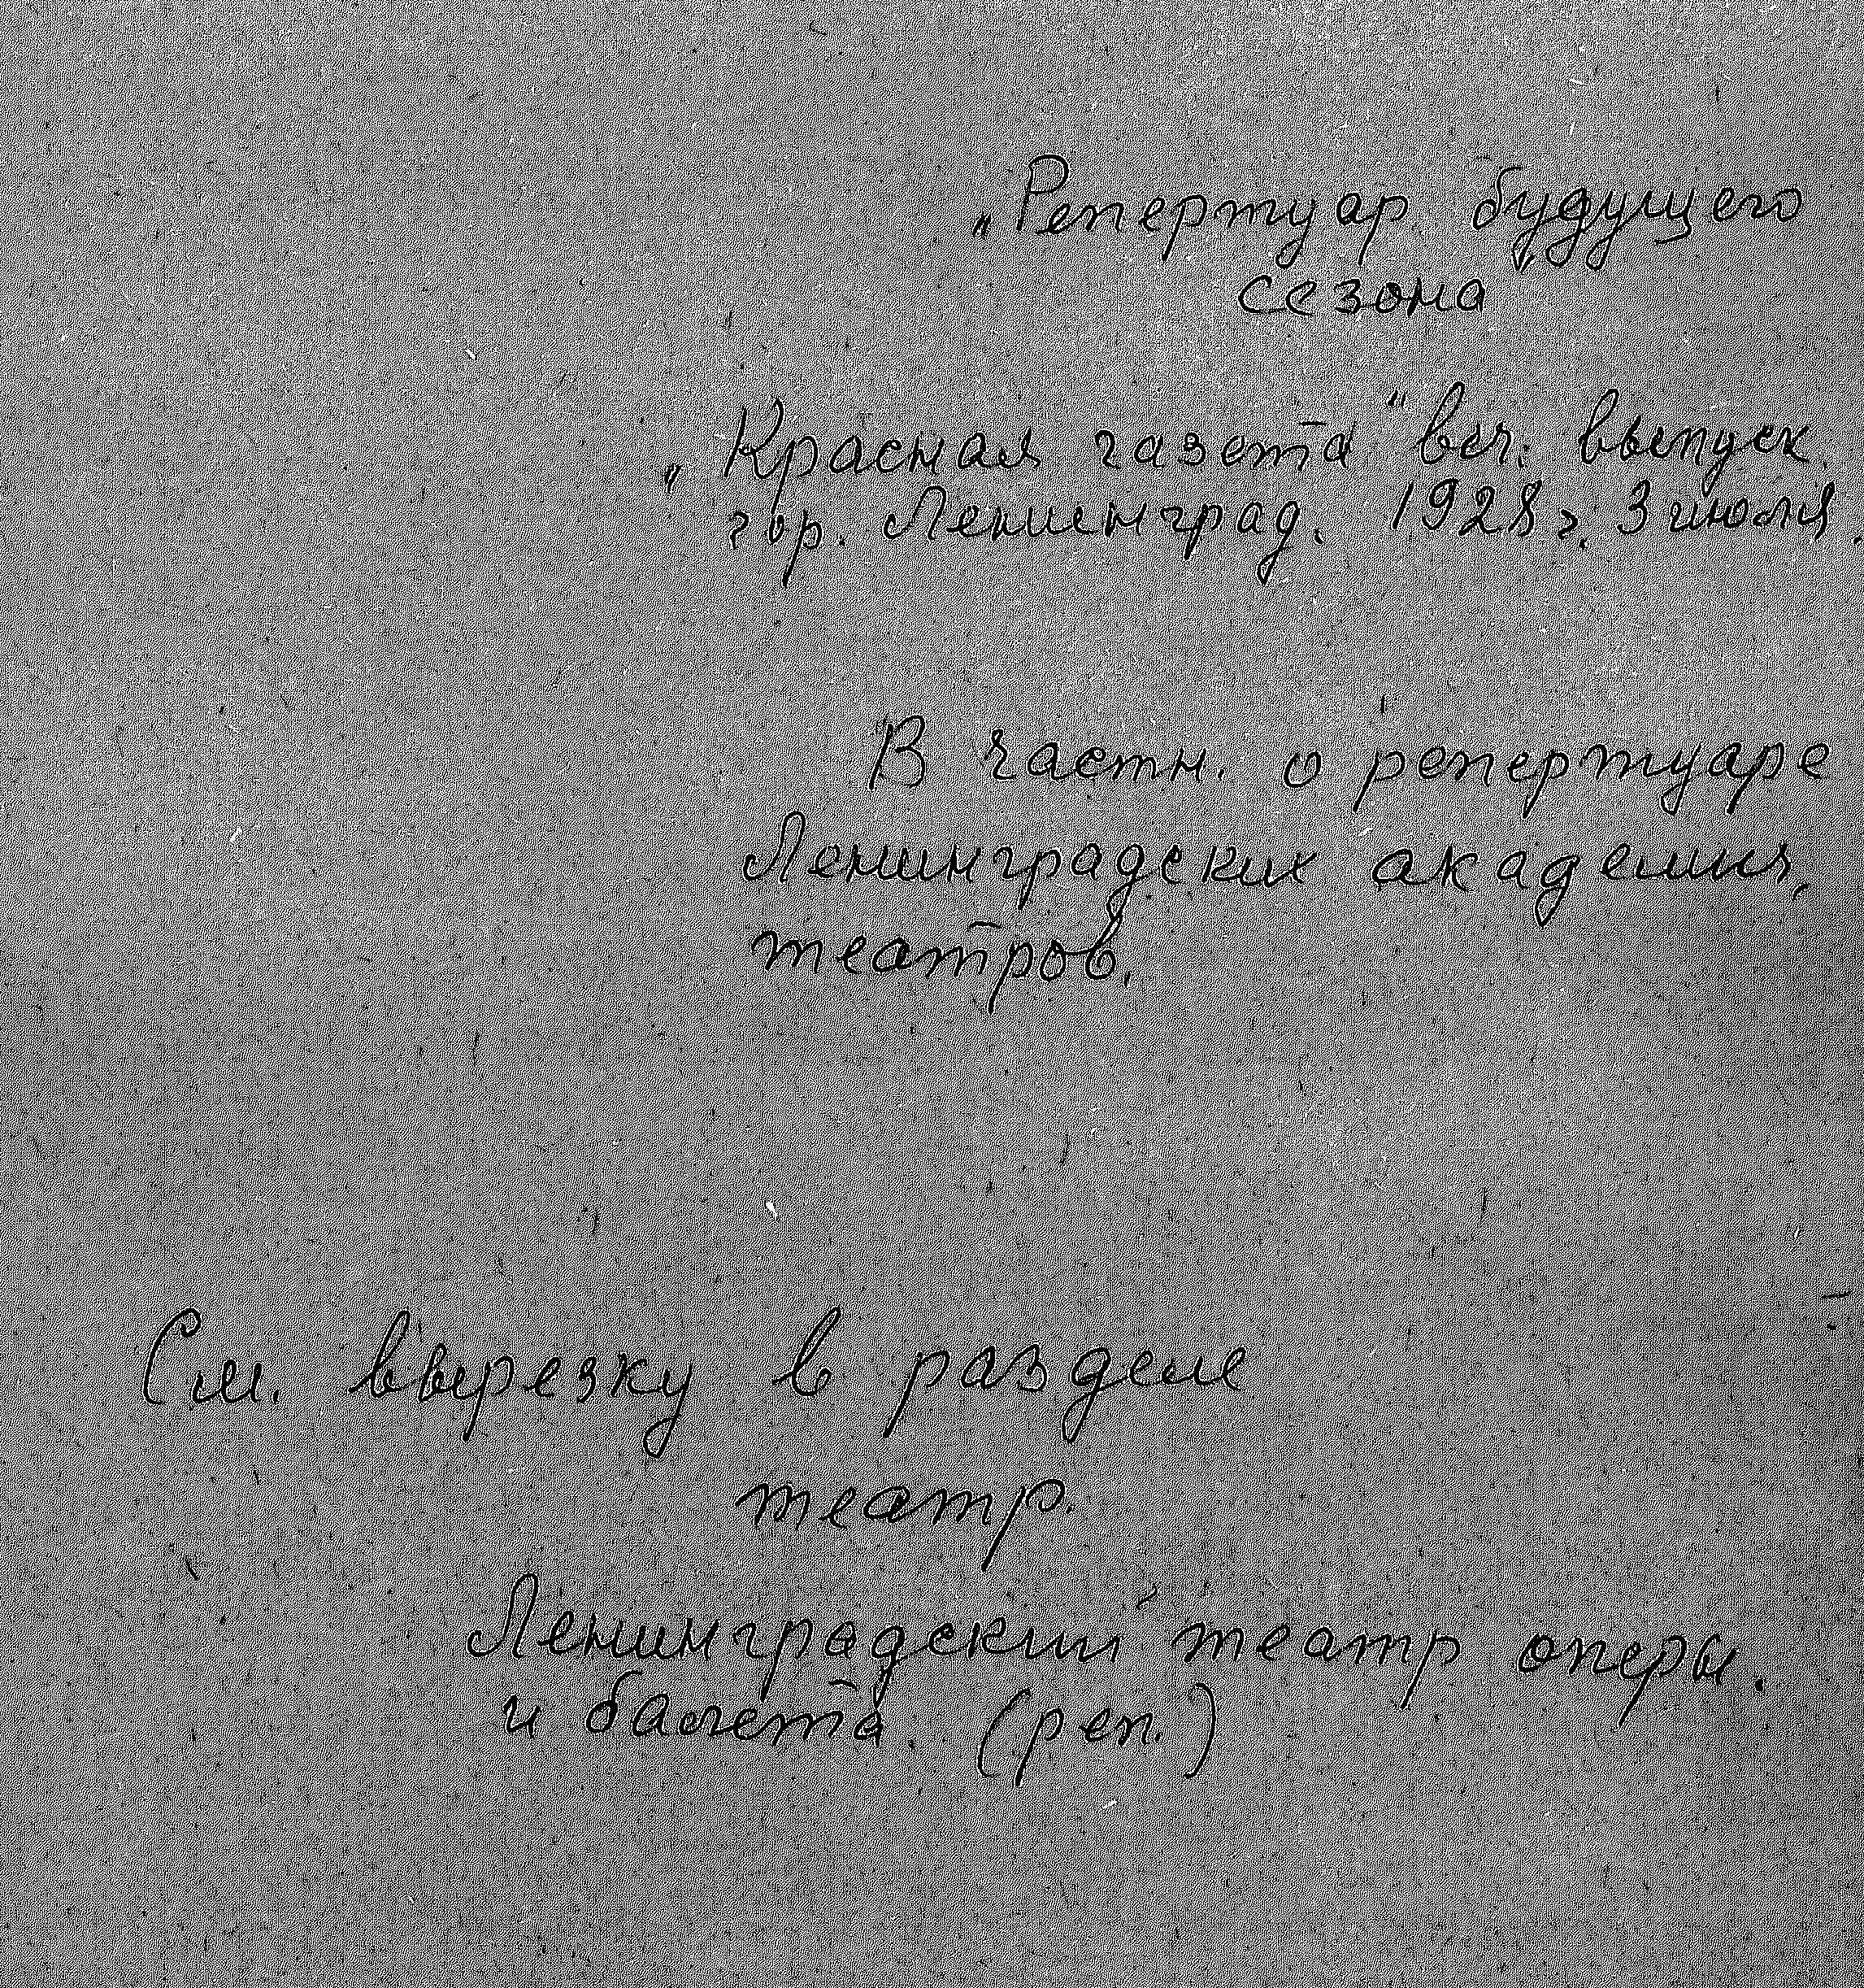 „Репертуар будущего
сезона"
„Красная газета" веч. выпуск.
гор. Ленинград. 1928 г. 3 июля.
В частн. о репертуаре
Ленинградских академич.
театров.
См. вырезку в разделе
театр.
Ленинградский театр оперы.
и балета. (реп.)